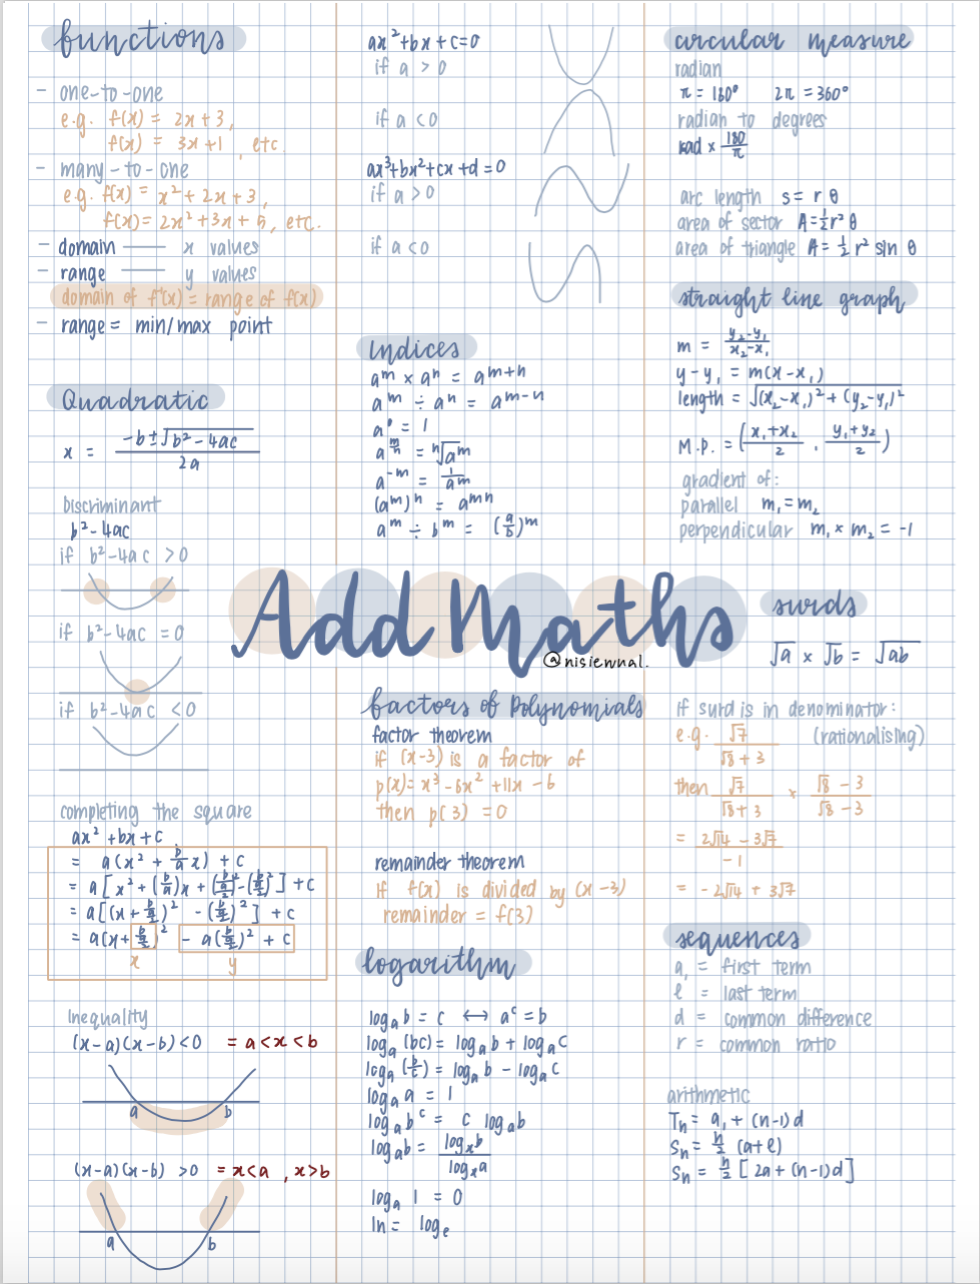 functions
- one-to-one
e.g. f(x) = 2x + 3,
f(x) = 3x+1, etc.
- many-to-one
e.g. f(x) = x² + 2x + 3,
f(x) = 2x² + 3x + 5, etc.
- domain —— x values
- range —— y values
domain of f⁻¹(x) = range of f(x)
- range = min/max point
Quadratic
x = (-b ± √(b² - 4ac)) / 2a
Discriminant
b² - 4ac
if b² - 4ac > 0
if b² - 4ac = 0
if b² - 4ac < 0
completing the square
ax² + bx + c
= a(x² + b/a x) + c
= a[x² + (b/a)x + ((b/a)/2)² - ((b/a)/2)²] + c
= a[(x + (b/a)/2)² - ((b/a)/2)²] + c
= a(x + (b/a)/2)² - a((b/a)/2)² + c
x y
Inequality
(x-a)(x-b) < 0 = a < x < b
a b
(x-a)(x-b) > 0 = x < a, x > b
a b
ax² + bx + c = 0
if a > 0
if a < 0
ax³ + bx² + cx + d = 0
if a > 0
if a < 0
Indices
aᵐ × aⁿ = aᵐ⁺ⁿ
aᵐ ÷ aⁿ = aᵐ⁻ⁿ
a⁰ = 1
a^(m/n) = ⁿ√aᵐ
a⁻ᵐ = 1/aᵐ
(aᵐ)ⁿ = aᵐⁿ
aᵐ ÷ bᵐ = (a/b)ᵐ
Add Maths
@nisiewnal.
factors of Polynomials
factor theorem
if (x-3) is a factor of
p(x) = x³ - 6x² + 11x - 6
then p(3) = 0
remainder theorem
If f(x) is divided by (x-3)
remainder = f(3)
logarithm
logₐ b = c ↔ aᶜ = b
logₐ (bc) = logₐ b + logₐ c
logₐ (b/c) = logₐ b - logₐ c
logₐ a = 1
logₐ bᶜ = c logₐ b
logₐ b = logₓ b / logₓ a
logₐ 1 = 0
ln = logₑ
circular measure
radian
π = 180° 2π = 360°
radian to degrees
rad × 180/π
arc length s = r θ
area of sector A = ½ r² θ
area of triangle A = ½ r² sin θ
straight line graph
m = (y₂ - y₁)/(x₂ - x₁)
y - y₁ = m(x - x₁)
length = √((x₂ - x₁)² + (y₂ - y₁)²)
M.P. = ((x₁ + x₂)/2 , (y₁ + y₂)/2)
gradient of:
parallel m₁ = m₂
perpendicular m₁ × m₂ = -1
surds
√a × √b = √ab
If surd is in denominator:
e.g. √7 / (√8 + 3) (rationalising)
then √7 / (√8 + 3) × (√8 - 3) / (√8 - 3)
= (2√14 - 3√7) / -1
= -2√14 + 3√7
sequences
a₁ = first term
ℓ = last term
d = common difference
r = common ratio
arithmetic
Tₙ = a₁ + (n-1)d
Sₙ = n/2 (a+ℓ)
Sₙ = n/2 [2a + (n-1)d]